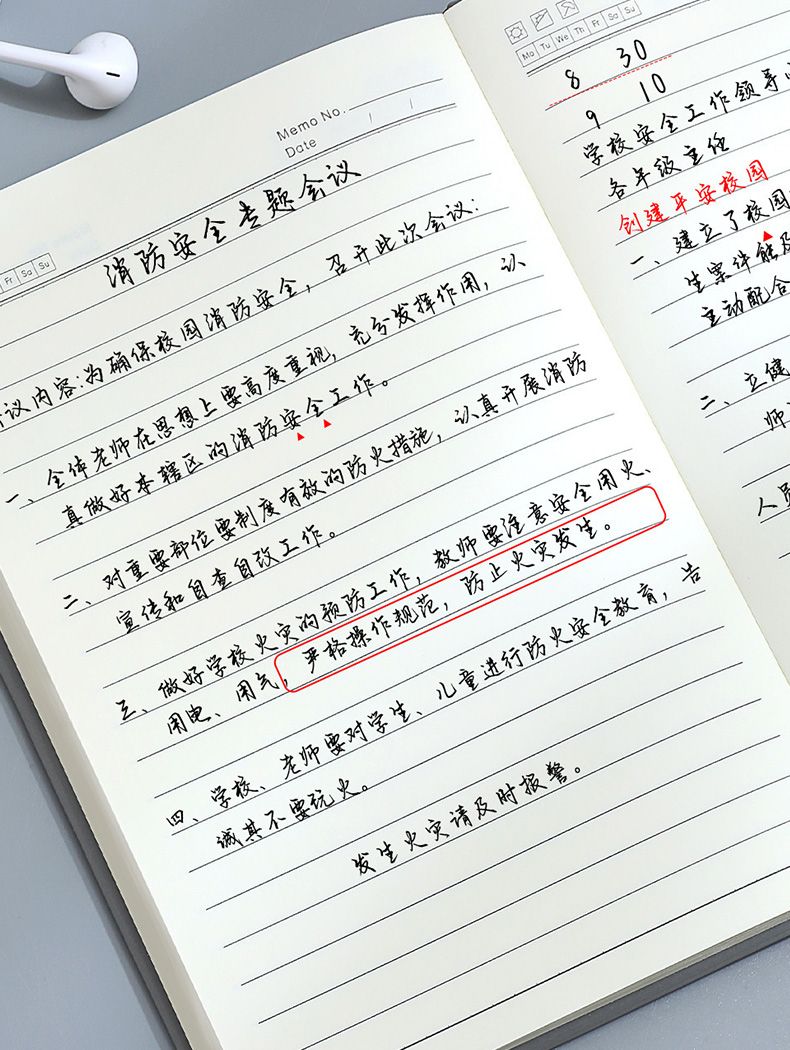 Memo No.
Date / /
Fr Sa Su
消防安全专题会议
议内容:为确保校园消防安全，召开此次会议:
一、全体老师在思想上要高度重视，充分发挥作用，认
真做好本辖区的消防安全工作。
二、对重要部位要制度有效的防火措施，认真开展消防
宣传和自查自改工作。
三、做好学校火灾的预防工作，教师要注意安全用火、
用电、用气，严格操作规范，防止火灾发生。
四、学校、老师要对学生、儿童进行防火安全教育，告
诫其不要玩火。
发生火灾请及时报警。
Mo Tu We Th Fr Sa Su
8 30
9 10
学校安全工作领导
各年级主任
创建平安校园
一、建立了校园
生案件能及
主动配合
二、立健
师
人员